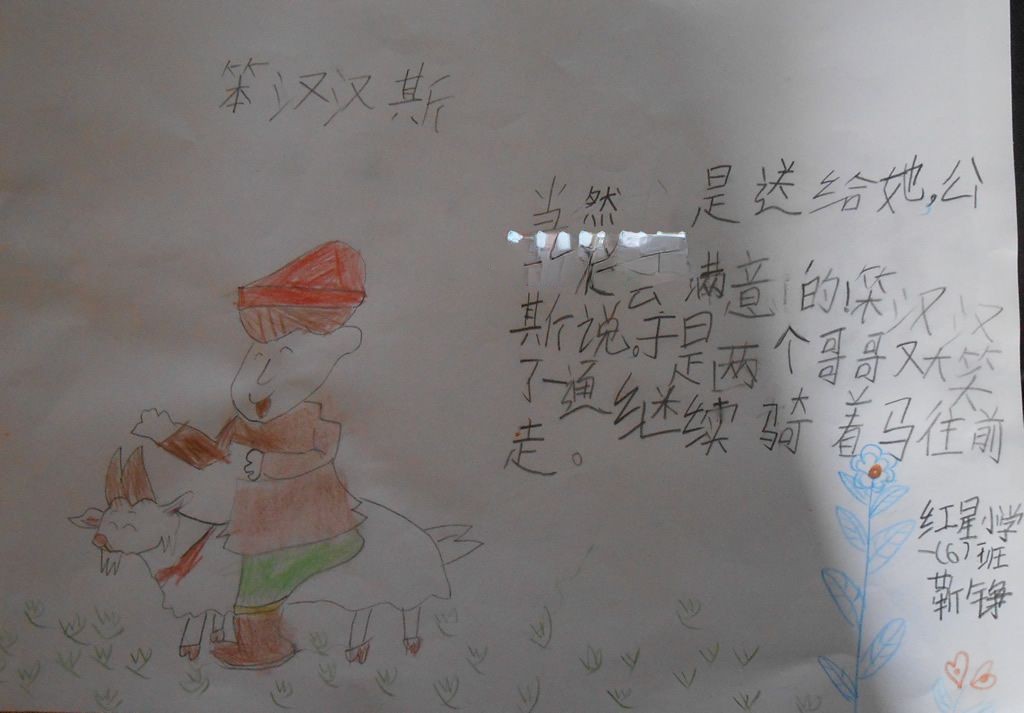 笨汉汉斯
当然是送给她，公
满意的！笨汉汉
斯说。于是两个哥哥又大笑
了一通继续骑着马往前
走。
红星小学
一(6)班
靳铮